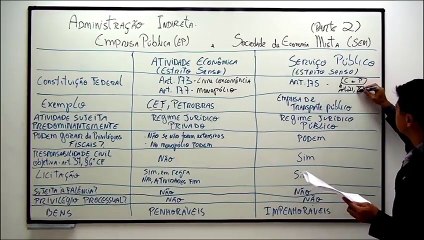 ADMINISTRAÇÃO INDIRETA (PARTE 2)
EMPRESA PÚBLICA (EP) e SOCIEDADE DE ECONOMIA MISTA (SEM)
ATIVIDADE ECONÔMICA SERVIÇO PÚBLICO
(ESTRITO SENSO) (ESTRITO SENSO)
CONSTITUIÇÃO FEDERAL ART. 173 - LIVRE CONCORRÊNCIA ART. 175 - (C + P)
ART. 177 - MONOPÓLIO
EXEMPLO CEF, PETROBRAS EMPRESA DE
TRANSPORTE PÚBLICO
ATIVIDADE SUJEITA REGIME JURÍDICO REGIME JURÍDICO
PREDOMINANTEMENTE PRIVADO PÚBLICO
PODEM GOZAR DE PRIVILÉGIOS NÃO SE NÃO FOR EXTENSIVOS PODEM
FISCAIS? NO MONOPÓLIO PODEM
RESPONSABILIDADE CIVIL NÃO SIM
OBJETIVA - ART. 37, §6º CF
LICITAÇÃO SIM, EM REGRA
NÃO, ATIVIDADES FIM
SUJEITA A FALÊNCIA? NÃO NÃO
PRIVILÉGIO PROCESSUAL? NÃO NÃO
BENS PENHORÁVEIS IMPENHORÁVEIS